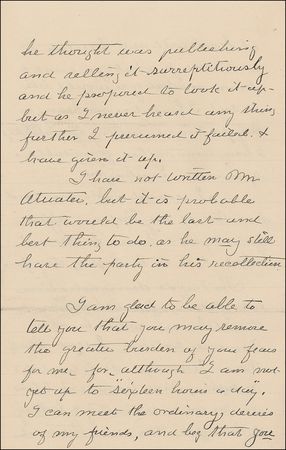 he thought was publishing
and selling it surreptitiously
and he proposed to look it up
but as I never heard any thing
further I presumed it failed. &
have given it up.
I have not written Mr
Atwater. but it is probable
that would be the last and
best thing to do. as he may still
have the party in his recollection
I am glad to be able to
tell you that you may remove
the greater burden of your fears
for me - for although I am not
yet up to "sixteen hours a day".
I can meet the ordinary desires
of my friends, and beg that you